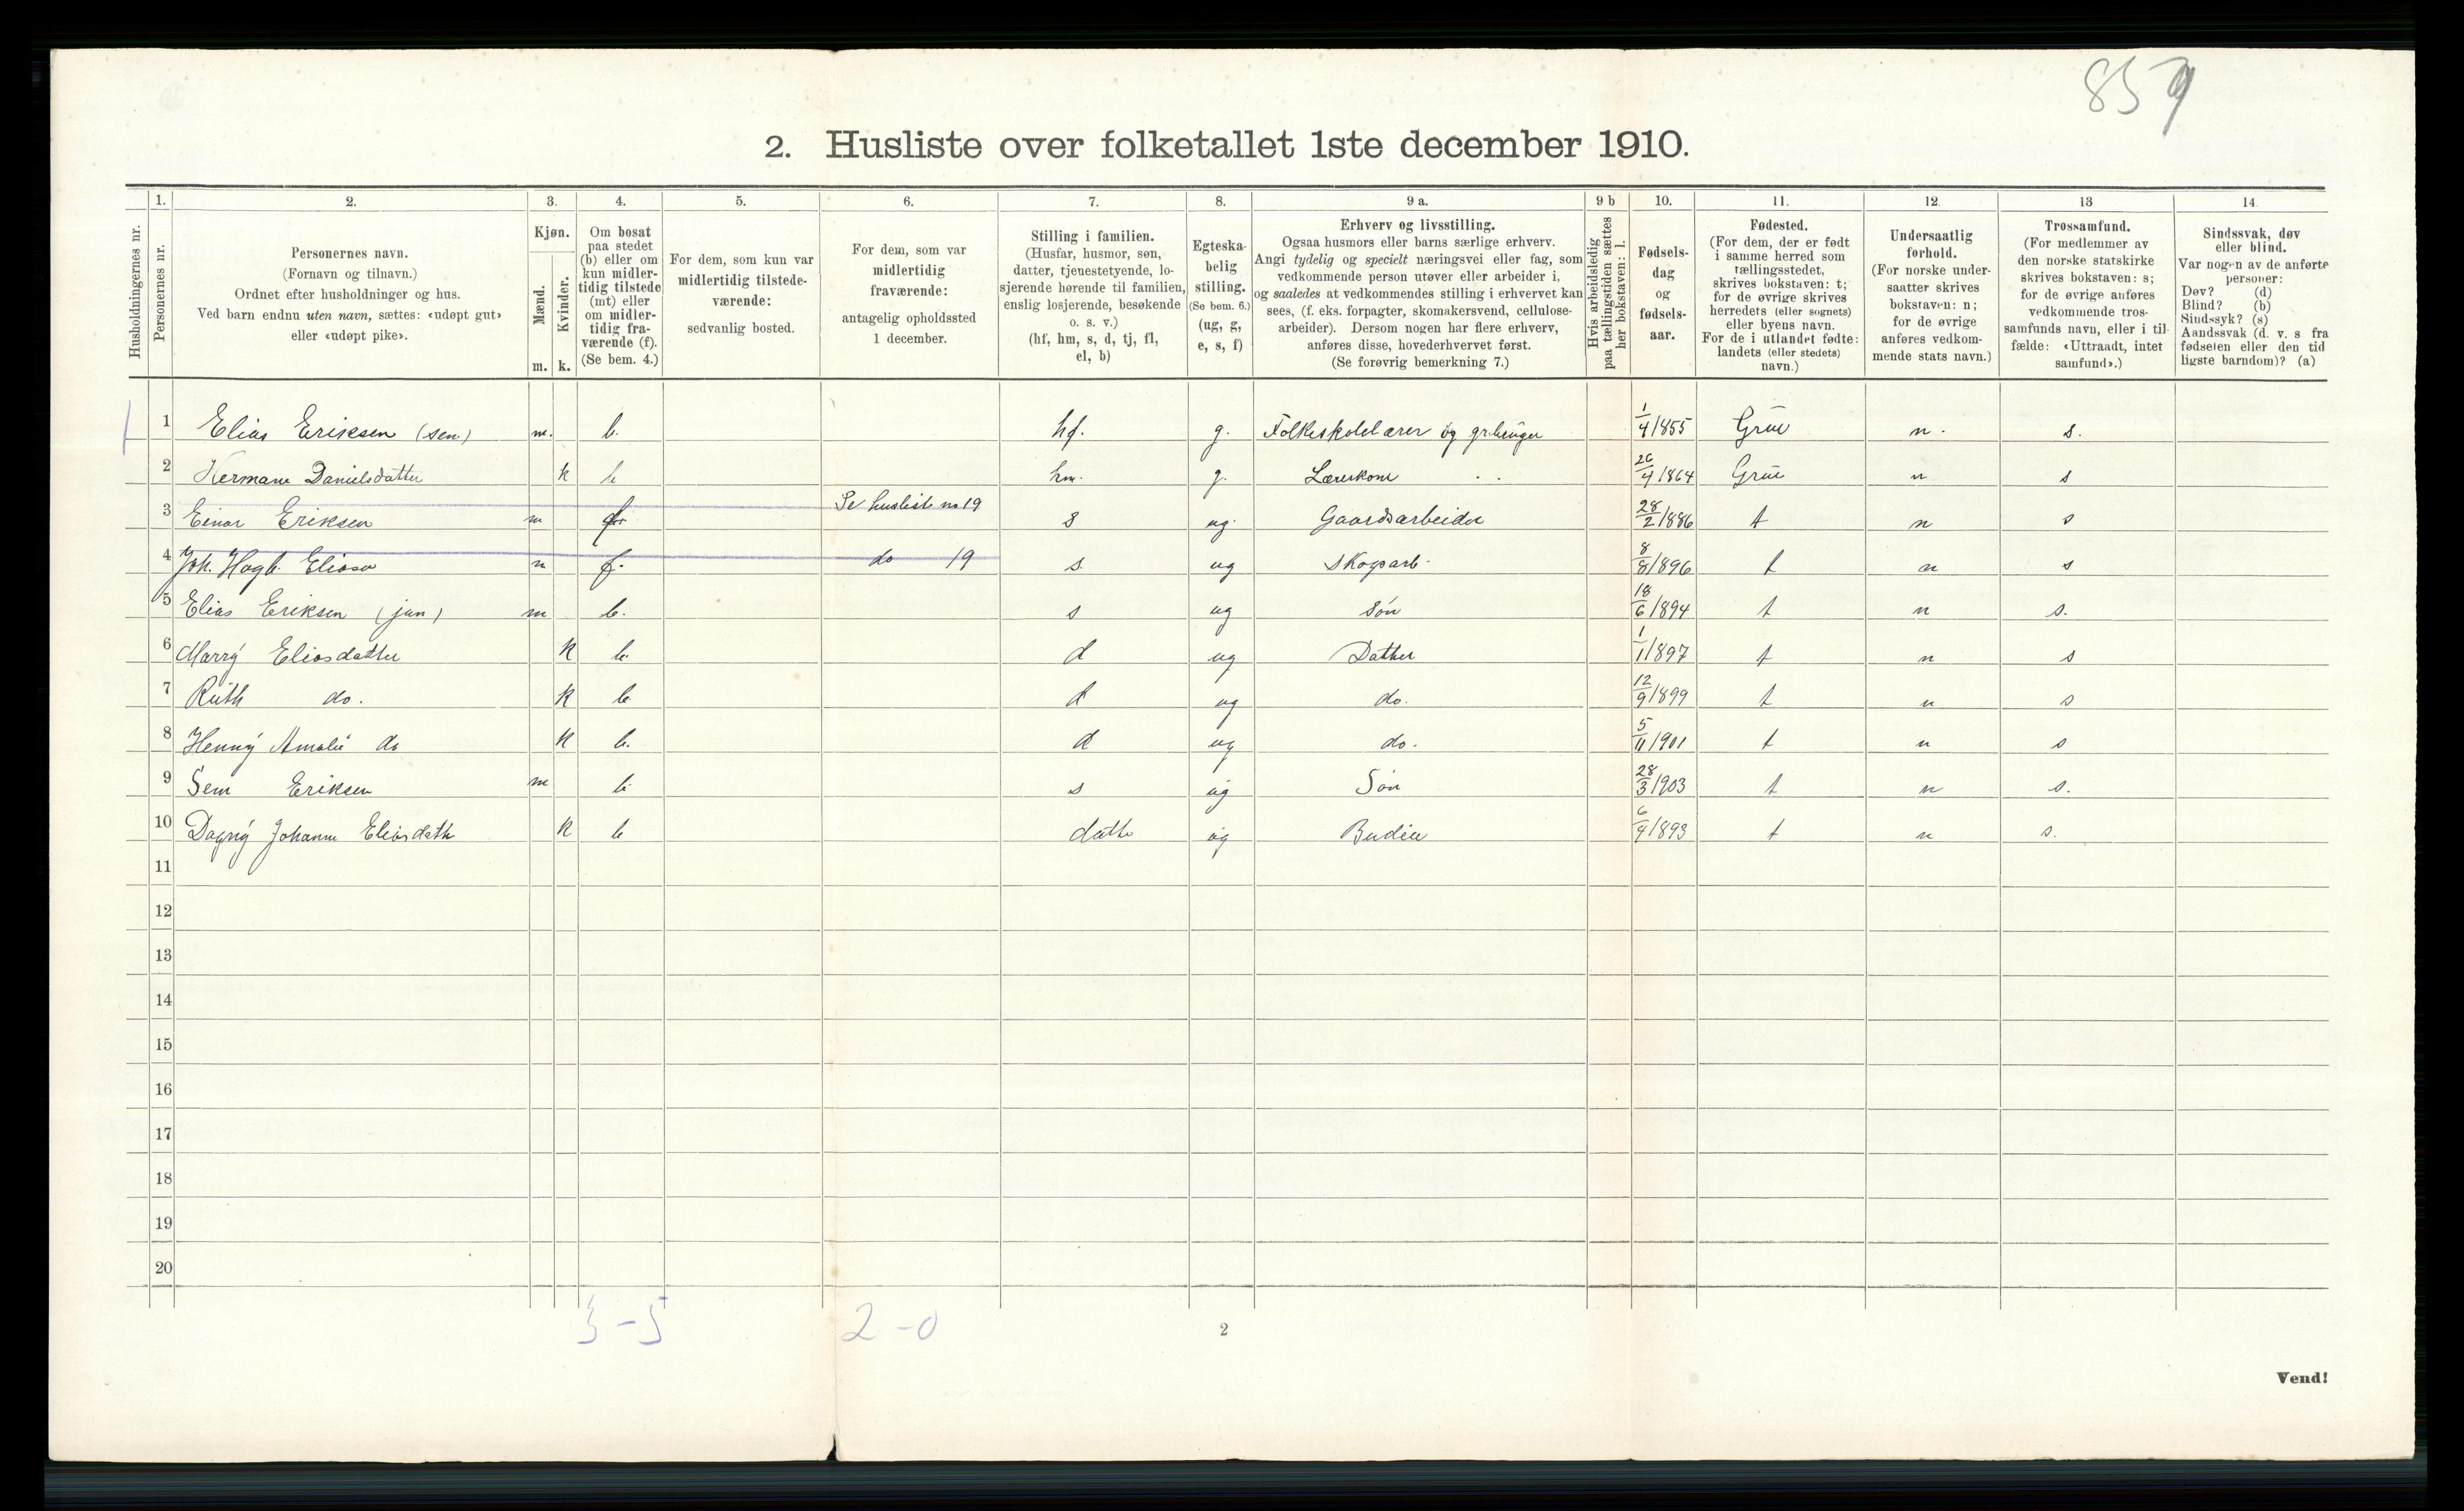 859
2. Husliste over folketallet 1ste december 1910.
Husholdningernes nr.
1. Personernes nr.
2. Personernes navn.
(Fornavn og tilnavn.)
Ordnet efter husholdninger og hus.
Ved barn endnu uten navn, sættes: «udøpt gut»
eller «udøpt pike».
3. Kjøn.
Mænd. m.
Kvinder. k.
4. Om bosat
paa stedet
(b) eller om
kun midler-
tidig tilstede
(mt) eller
om midler-
tidig fra-
værende (f).
(Se bem. 4.)
5. For dem, som kun var
midlertidig tilstede-
værende:
sedvanlig bosted.
6. For dem, som var
midlertidig
fraværende:
antagelig opholdssted
1 december.
7. Stilling i familien.
(Husfar, husmor, søn,
datter, tjenestetyende, lo-
sjerende hørende til familien,
enslig losjerende, besøkende
o. s. v.)
(hf, hm, s, d, tj, fl,
el, b)
8. Egteska-
belig
stilling.
(Se bem. 6.)
(ug, g,
e, s, f)
9 a. Erhverv og livsstilling.
Ogsaa husmors eller barns særlige erhverv.
Angi tydelig og specielt næringsvei eller fag, som
vedkommende person utøver eller arbeider i,
og saaledes at vedkommendes stilling i erhvervet kan
sees, (f. eks. forpagter, skomakersvend, cellulose-
arbeider). Dersom nogen har flere erhverv,
anføres disse, hovederhvervet først.
(Se forøvrig bemerkning 7.)
9 b Hvis arbeidsledig
paa tællingstiden sættes
her bokstaven: l.
10. Fødsels-
dag
og
fødsels-
aar.
11. Fødested.
(For dem, der er født
i samme herred som
tællingsstedet,
skrives bokstaven: t;
for de øvrige skrives
herredets (eller sognets)
eller byens navn.
For de i utlandet fødte:
landets (eller stedets)
navn.)
12. Undersaatlig
forhold.
(For norske under-
saatter skrives
bokstaven: n;
for de øvrige
anføres vedkom-
mende stats navn.)
13 Trossamfund.
(For medlemmer av
den norske statskirke
skrives bokstaven: s;
for de øvrige anføres
vedkommende tros-
samfunds navn, eller i til-
fælde: «Uttraadt, intet
samfund».)
14. Sindssvak, døv
eller blind.
Var nogen av de anførte
personer:
Døv? (d)
Blind? (b)
Sindssyk? (s)
Aandssvak (d. v. s fra
fødselen eller den tid
ligste barndom)? (a)
1 Elias Eriksen (sen.) m. b. hf. g. Folkeskolelærer og grbruger 1/4 1855 Grue n. s.
2 Hermane Danielsdatter k b hm. g. Lærerkone 26/4 1864 Grue n s
3 Einar Eriksen m f Se husliste no 19 s ug. Gaardsarbeider 28/2 1886 t n s
4 Joh. Hagb. Eliasen m f. do 19 s ug Skogsarb. 8/8 1896 t n s
5 Elias Eriksen (jun) m b. s ug søn 18/6 1894 t n s.
6 Marry Eliasdatter k b. d ug Datter 1/1 1897 t n s
7 Ruth do. k b d ug do. 12/9 1899 t n s
8 Henny Amalie do k b. d ug do. 5/11 1901 t n s
9 Sem Eriksen m b. s ug Søn 28/3 1903 t n s.
10 Dagny Johanne Eliasdatt k b datt ug Budeie 6/4 1893 t n s.
11
12
13
14
15
16
17
18
19
20
3-5 2-0
2
Vend!